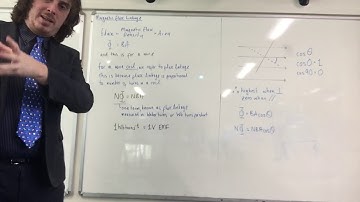 Magnetic Flux Linkage
Flux = Magnetic Flux Density × Area
Φ = BA
and this is for a coil
for a wire coil, we refer to flux linkage
this is because flux linkage is proportional
to number of turns in a coil
NΦ = NBA
one term, known as flux linkage
measured in Weber turns or Wb turns
1 Wb turn s⁻¹ = 1V EMF
cosθ
cos0 = 1
cos90 = 0
Φ is highest when ⊥
zero when //
Φ = BAcosθ
NΦ = NBAcosθ